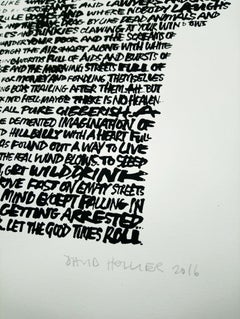 AND LAWYERS
AND WHERE NOBODY LAUGHS
LIKE DEAD ANIMALS AND
AND JUNKIES CLAWING AT YOUR WINDOWS
UNDER YOUR DOOR AND THE SCREAMS OF
THE AIR SHAFT ALONE WITH WHITE
FULL OF AIDS AND BURSTS OF
AND THE STREETS FULL OF
FOR MONEY AND FONDLING THEMSELVES
TRAILING AFTER THEM. AH. BUT
AND HELL, MAYBE THERE IS NO HEAVEN
ALL PURE GIBBERISH. A
DEMENTED IMAGINATION OF
HILLBILLY WITH A HEART FULL
FOUND OUT A WAY TO LIVE
THE REAL WIND BLOWS. TO SLEEP
GIRL WILD DRINK
FAST ON EMPTY STREETS
MIND EXCEPT FALLING IN
GETTING ARRESTED
LET THE GOOD TIMES ROLL
DAVID HOLLIER 2016